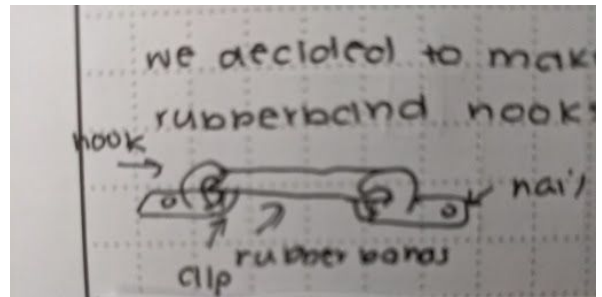 we decided to mak
rubberband hooks
hook
nail
rubber bands
clip